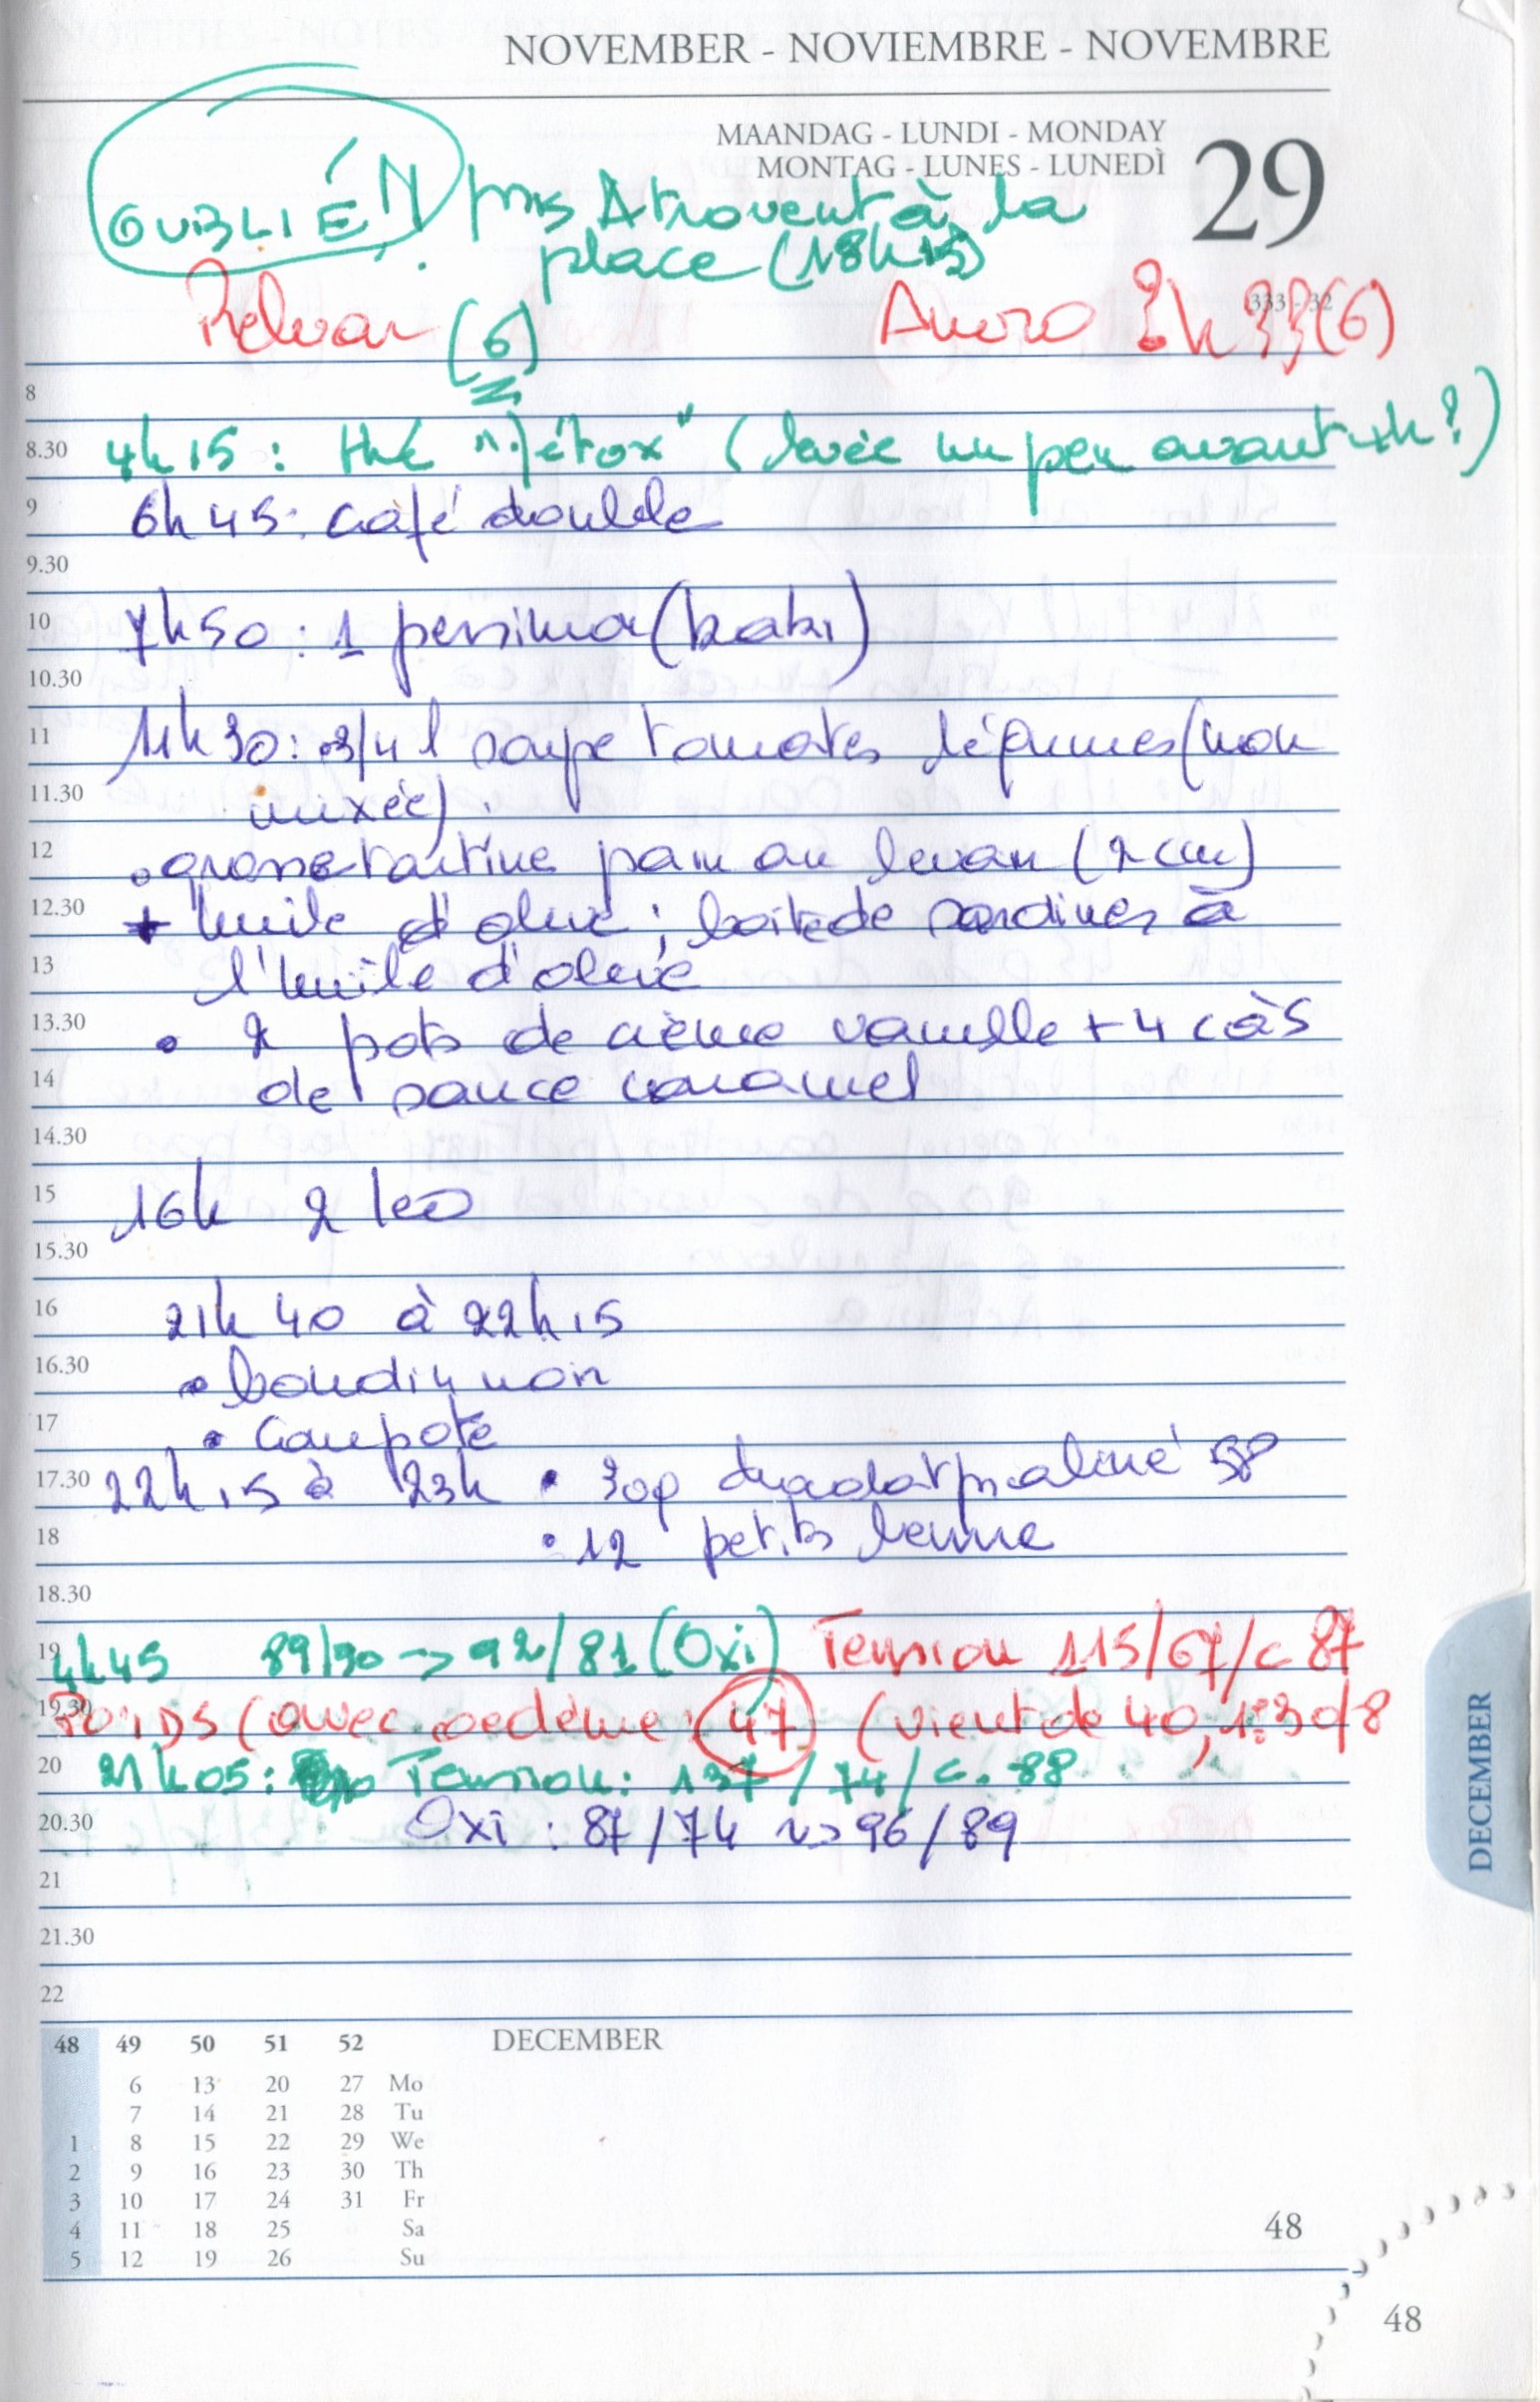 NOVEMBER - NOVIEMBRE - NOVEMBRE
MAANDAG - LUNDI - MONDAY
MONTAG - LUNES - LUNEDÌ
29
OUBLIÉ !! pris Atrovent à la
place (18h15)
333 - 32
Relvar (6) Anoro 2h33 (6)
8
8.30 4h15 : thé "détox" (levée un peu avant 4h ?)
9 6h45 : café double
9.30
10 7h50 : 1 persimon (kaki)
10.30
11 11h30 : 3/4 l soupe tomates légumes (non
11.30 mixée)
12 • grosse tartine pain au levain (2 cm)
12.30 + huile d'olive ; boite de sardines à
13 l'huile d'olive
13.30 • 2 pots de crème vanille + 4 càs
14 de sauce caramel
14.30
15 16h 2 leo
15.30
16 21h40 à 22h15
16.30 • boudin noir
17 • compote
17.30 22h15 à 23h • 30g chocolat praliné
18 • 12 petits beurre
18.30
19 4h45 89/90 -> 92/81 (Oxi) Tension 115/67/c 87
19.30 POIDS (avec oedème : 47) (vient de 40,
20 21h05 : Tension : 137/74/c. 88
20.30 Oxi : 87/74 -> 96/89
21
21.30
22
48 49 50 51 52 DECEMBER
6 13 20 27 Mo
7 14 21 28 Tu
1 8 15 22 29 We
2 9 16 23 30 Th
3 10 17 24 31 Fr
4 11 18 25 Sa
5 12 19 26 Su
48
48
DECEMBER